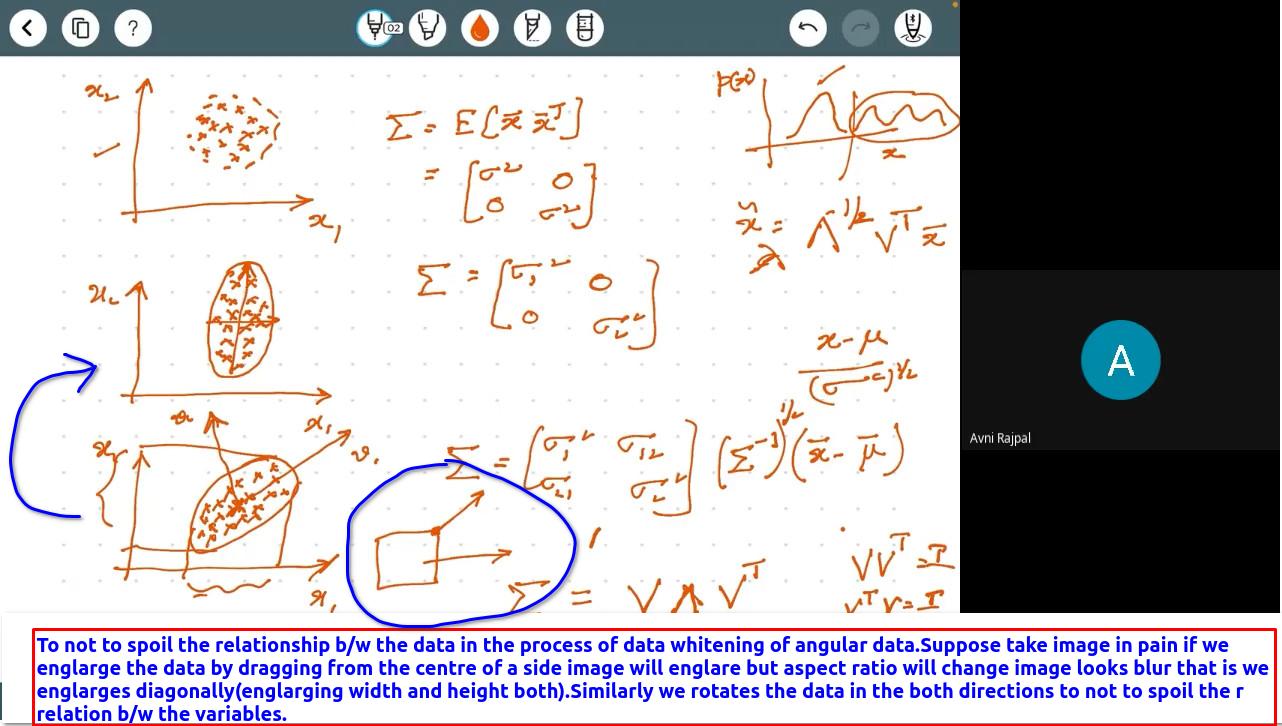 02
x₂
x₁
Σ = E[x̄ x̄ᵀ]
= [σ² 0
0 σ²]
p(x)
x
x̃ = Λ^1/2 Vᵀ x̄
x₂
x₁
Σ = [σ₁² 0
0 σ₂²]
x - μ
(σ²)^1/2
x₂
x₁
v₁
Σ = [σ₁² σ₁₂
σ₂₁ σ₂²]
(Σ⁻¹)^1/2 (x̄ - μ̄)
Σ = V Λ Vᵀ
VVᵀ = I
VᵀV = I
A
Avni Rajpal
To not to spoil the relationship b/w the data in the process of data whitening of angular data.Suppose take image in pain if we
englarge the data by dragging from the centre of a side image will englare but aspect ratio will change image looks blur that is we
englarges diagonally(englarging width and height both).Similarly we rotates the data in the both directions to not to spoil the r
relation b/w the variables.